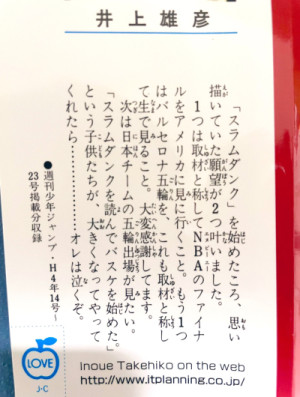 井上雄彦
「スラムダンク」を始めたころ、思い
描いていた願望が2つ叶いました。
1つは取材と称してNBAのファイナ
ルをアメリカに見に行くこと。もう1つ
はバルセロナ五輪を、これも取材と称し
て生で見ること。大変感謝してます。
次は日本チームの五輪出場が見たい。
「スラムダンクを読んでバスケを始めた」
という子供たちが、大きくなってやって
くれたら………… オレは泣くぞ。
●週刊少年ジャンプ H4年14号~
23号掲載分収録
LOVE
J-C
Inoue Takehiko on the web
http://www.itplanning.co.jp/